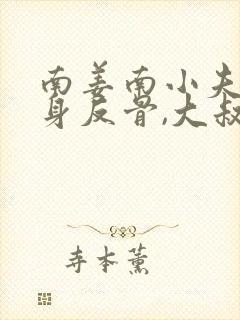 南姜南小夫
身反骨,大叔
寺本薰